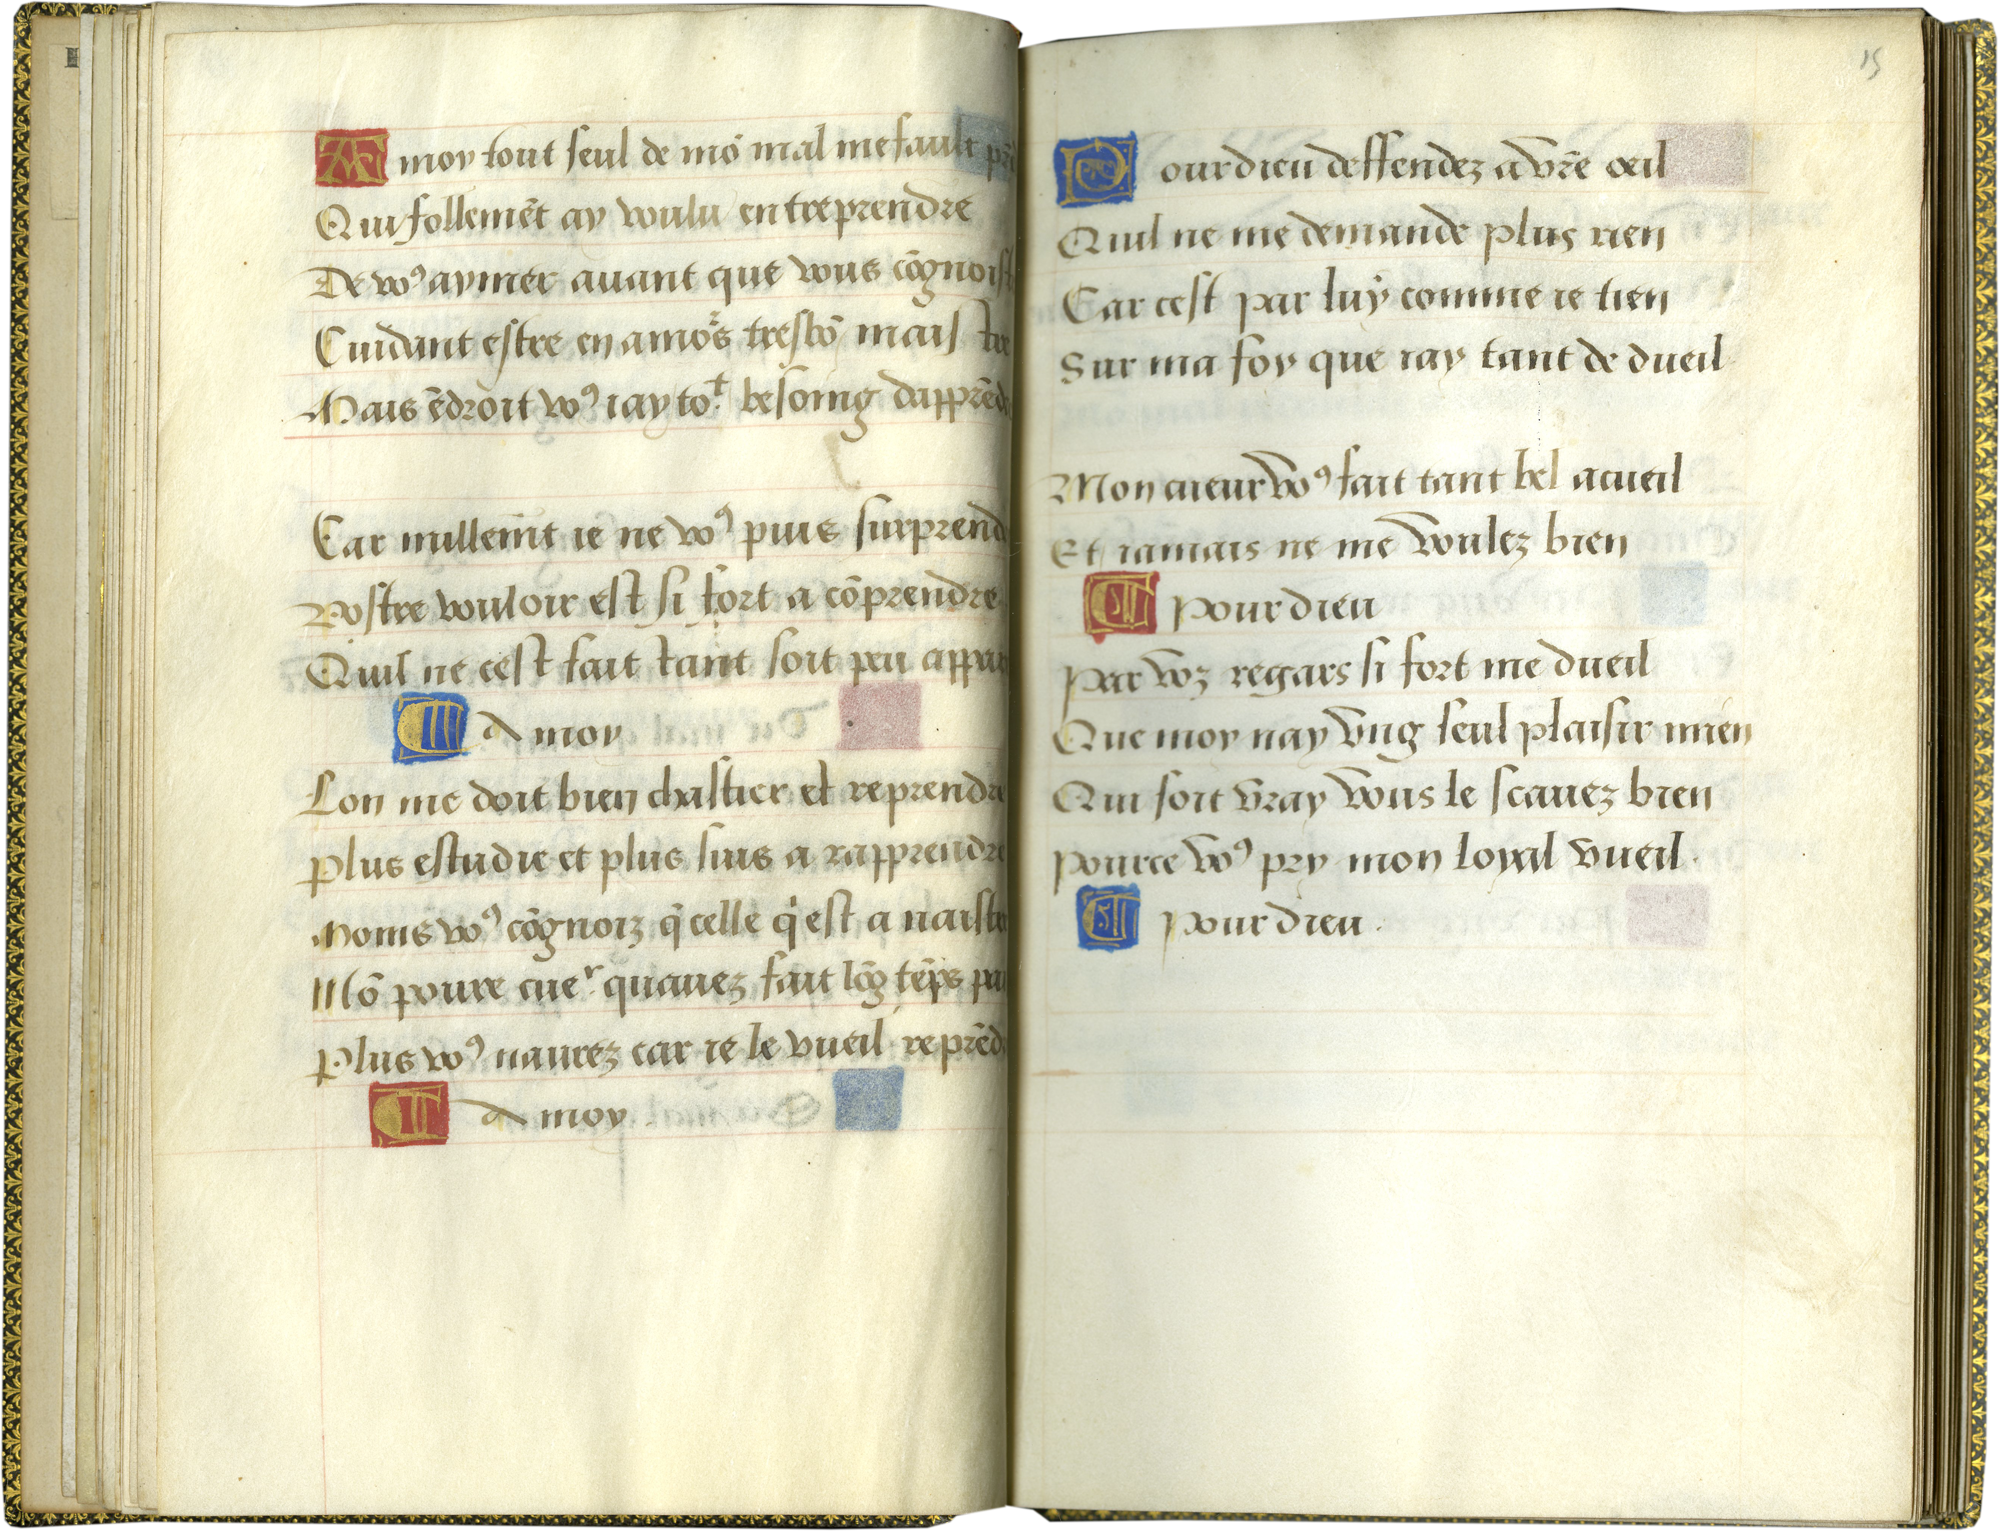 A moy tout seul de mō mal me fault
Qui follemēt ay voulu entreprendre
De voꝰ aymer auant que vous
Cuidant estre en amors tresbō mais
Mais ēdroit voꝰ iay tot besoing
Car nullemt ie ne voꝰ puis
Vostre vouloir est si fort a cōprendre
Quil ne cest fait tant soit peu
A moy
Lon me doit bien chastier et reprendre
Plus estudie et plus suis a rapprendre
Moins voꝰ cōgnoiz q̄ celle q̇ est a
Mō poure cuer quauez fait lōg tēps
Plus voꝰ naurez car ie le vueil
A moy
15
Pour dieu deffendez a vr̄e oeil
Quil ne me demande plus rien
Car cest par luy comme ie tien
Sur ma foy que iay tant de dueil
Mon cueur voꝰ fait tant bel acueil
Et iamais ne me voulez bien
Pour dieu
Par voz regars si fort me dueil
Que moy nay vng seul plaisir mien
Qui soit vray vous le scauez bien
Pource voꝰ pry mon loyal vueil.
Pour dieu.